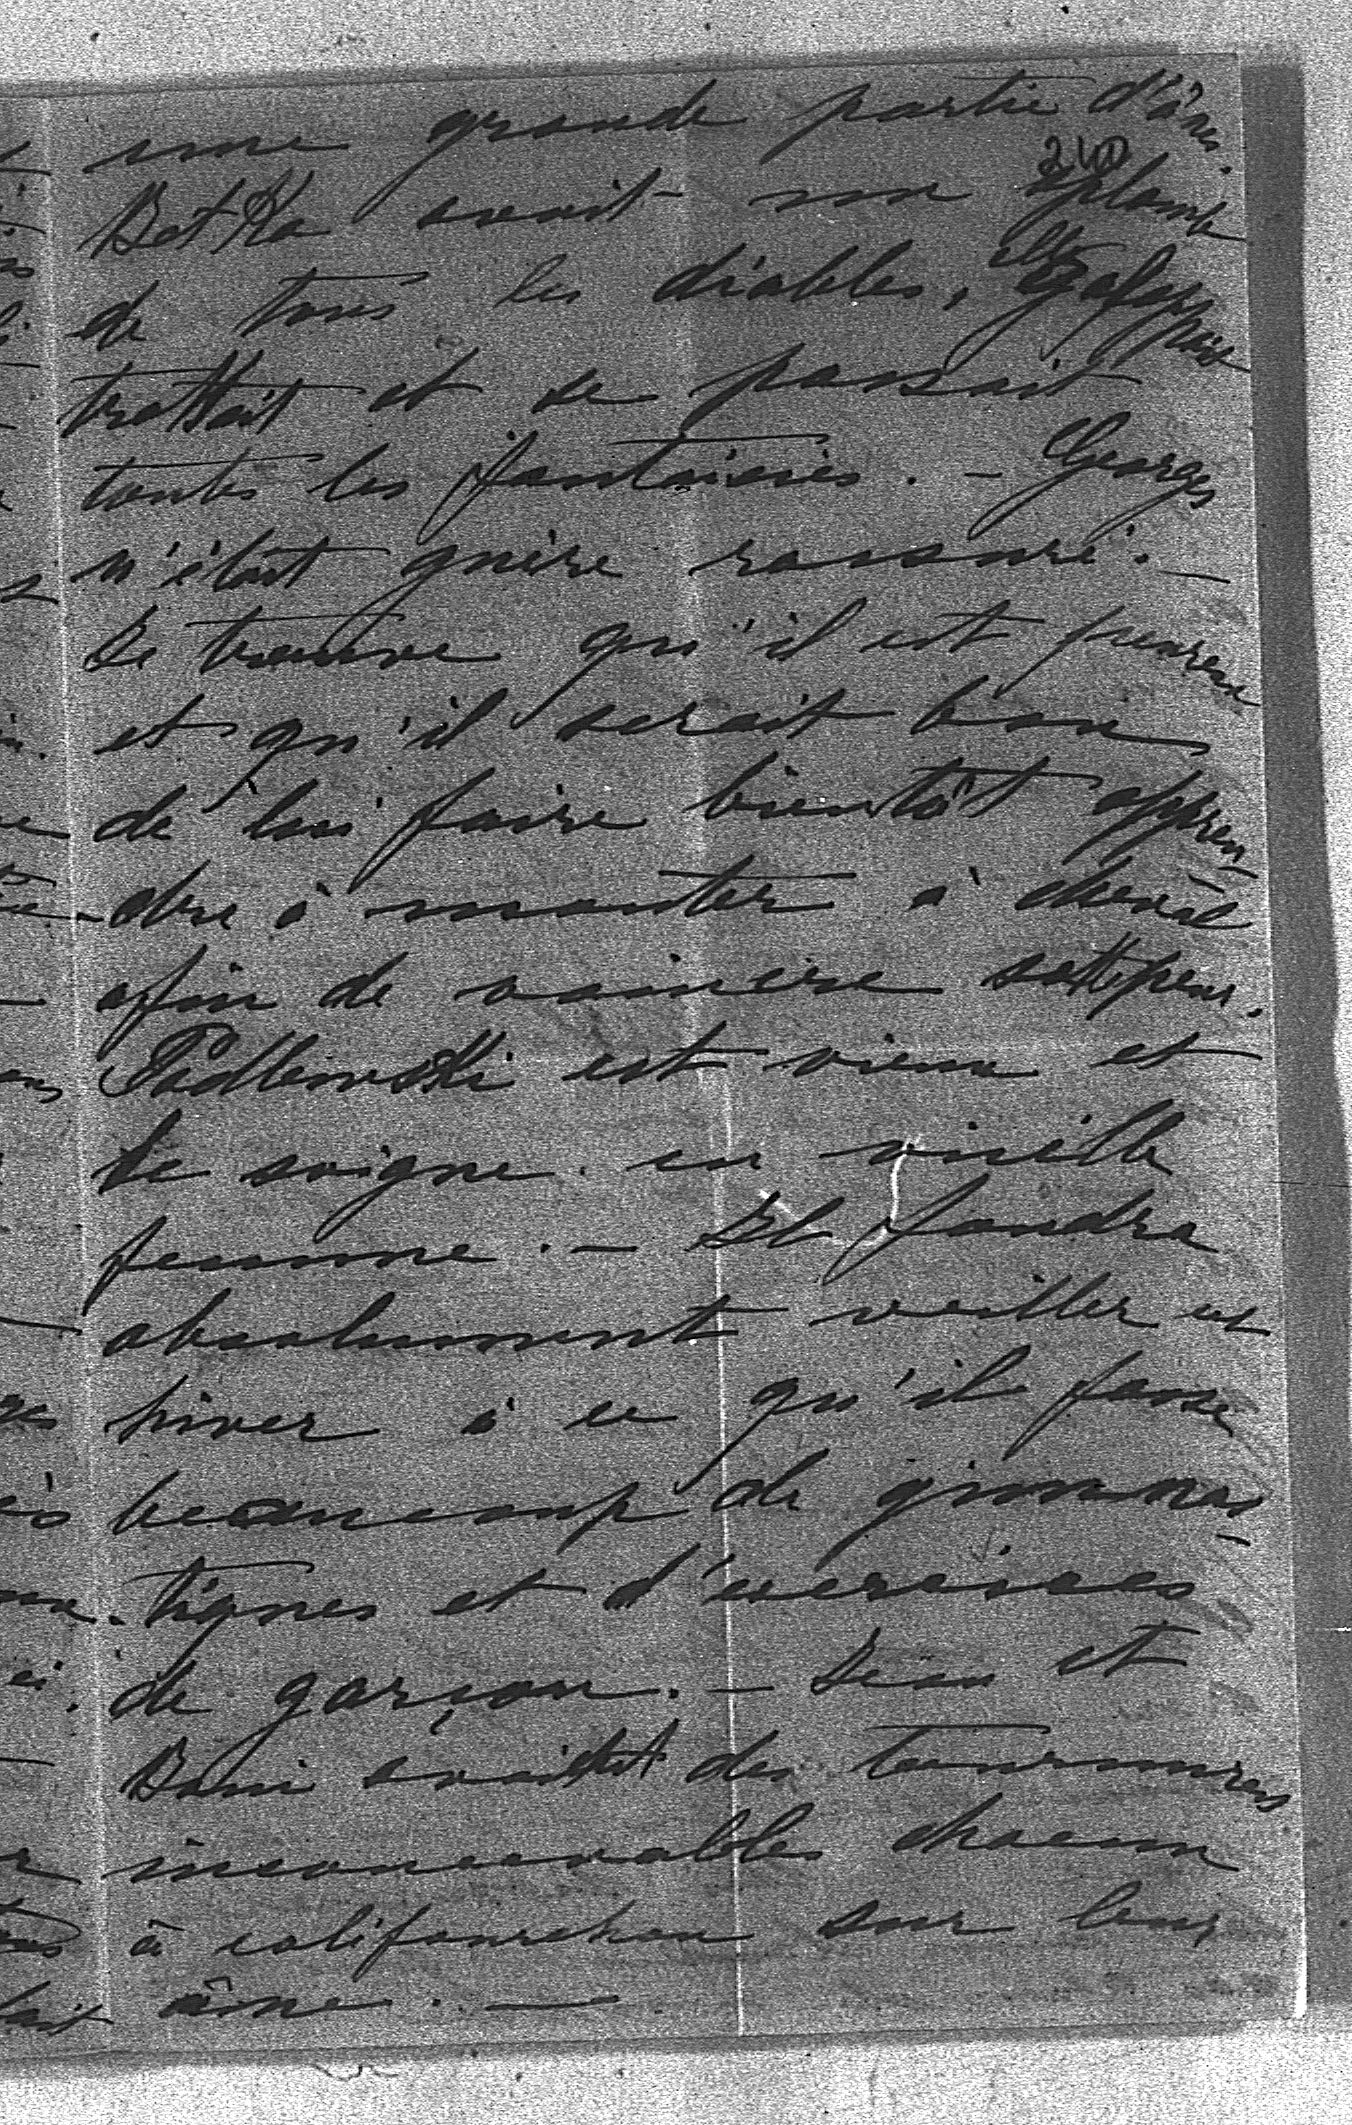 une grande partie d'ânes.
240
Betka avait un aplomb
de tous les diables, elle galopait
trottait et se passait
toutes les fantaisies. — Georges
n'était guère rassuré. —
Je trouve qu'il est peureux
et qu'il serait bon
de lui faire bientôt appren-
dre à monter à cheval
afin de vaincre cette peur.
Podlewski est vieux et
le soigne en vieille
femme. — Il faudra
absolument veiller cet
hiver à ce qu'il fasse
beaucoup de gimnas-
tiques et d'exercices
de garçon. — Jean et
Boni avaient des tournures
inconcevables chacun
à califourchon sur leur
âne. —